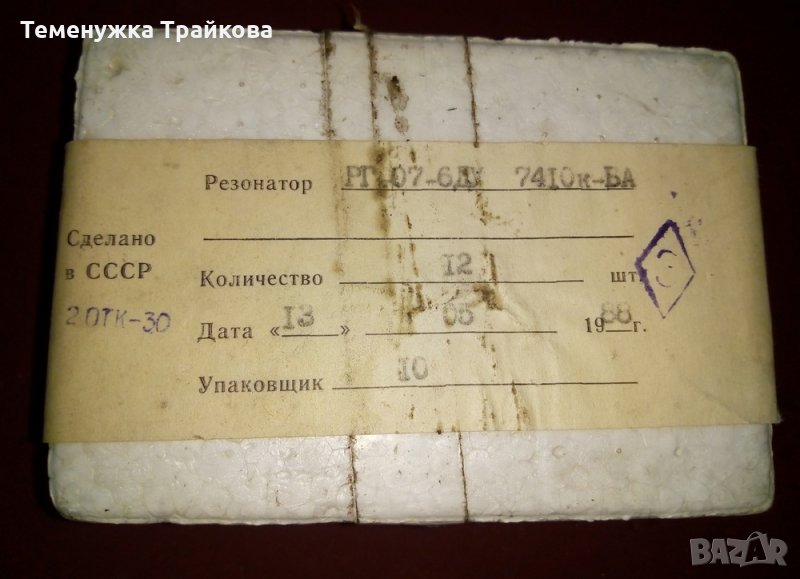 Теменужка Трайкова
Резонатор РГ-07-6ДУ 7410к-БА
Сделано
в СССР
2 ОТК-30
Количество 12 шт.
Дата «13» 05 1988 г.
Упаковщик 10
BAZAR